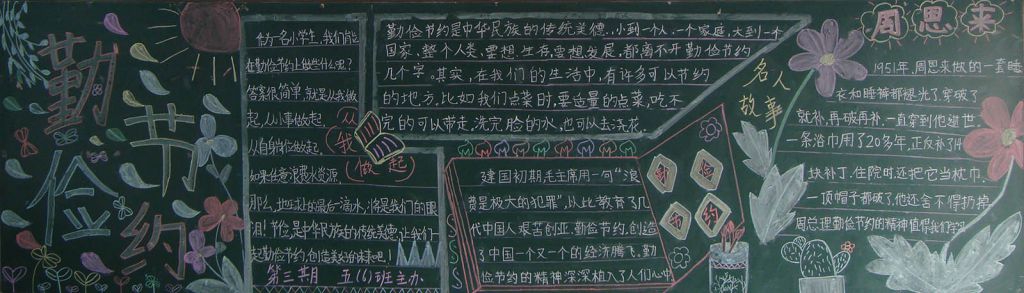 勤俭节约
作为一名小学生,我们能
在勤俭节约上做些什么呢?
答案很简单,就是从我做
起,从小事做起,
从自身做起。
如果任意浪费水资源,
那么,地球上的最后一滴水,将是我们的眼
泪!节俭是中华民族的传统美德,让我们一
起勤俭节约,创造美好的未来吧!
第三期 五(6)班主办
从我做起
勤俭节约是中华民族的传统美德,小到一个人,一个家庭,大到一个
国家,整个人类,要想生存,要想发展,都离不开勤俭节约
几个字。其实,在我们的生活中,有许多可以节约
的地方,比如我们点菜时,要适量的点菜,吃不
完的可以带走,洗完脸的水,也可以去浇花.
建国初期,毛主席用一句“浪
费是极大的犯罪”,从此教育了几
代中国人艰苦创业,勤俭节约,创造
了中国一个又一个的经济腾飞,勤
俭节约的精神深深植入了人们心中
勤俭节约
名人故事
周恩来
1951年,周恩来做的一套睡
衣和睡裤都褪光了,穿破了
就补,再破再补,一直穿到他逝世
一条浴巾用了20多年,正反补了
块补丁.住院时还把它当枕巾.
一顶帽子都破了,他还舍不得扔掉
周总理勤俭节约的精神值得我们学习